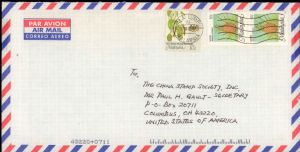 PAR AVION
AIR MAIL
CORREO AEREO
To,
THE CHINA STAMP SOCIETY, INC.
MR PAUL H. GAULT - SECRETARY
P-O-BOX 20711
COLUMBUS, OH 43220
UNITED STATES OF AMERICA
43220+0711